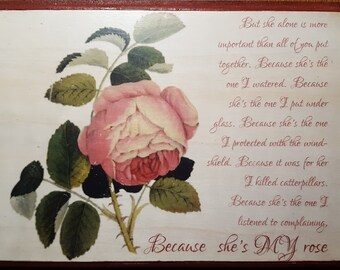 But she alone is more
important than all of you put
together. Because she's the
one I watered. Because
she's the one I put under
glass. Because she's the one
I protected with the wind-
shield. Because it was for her
I killed catterpillars.
Because she's the one I
listened to complaining,
Because she's MY rose